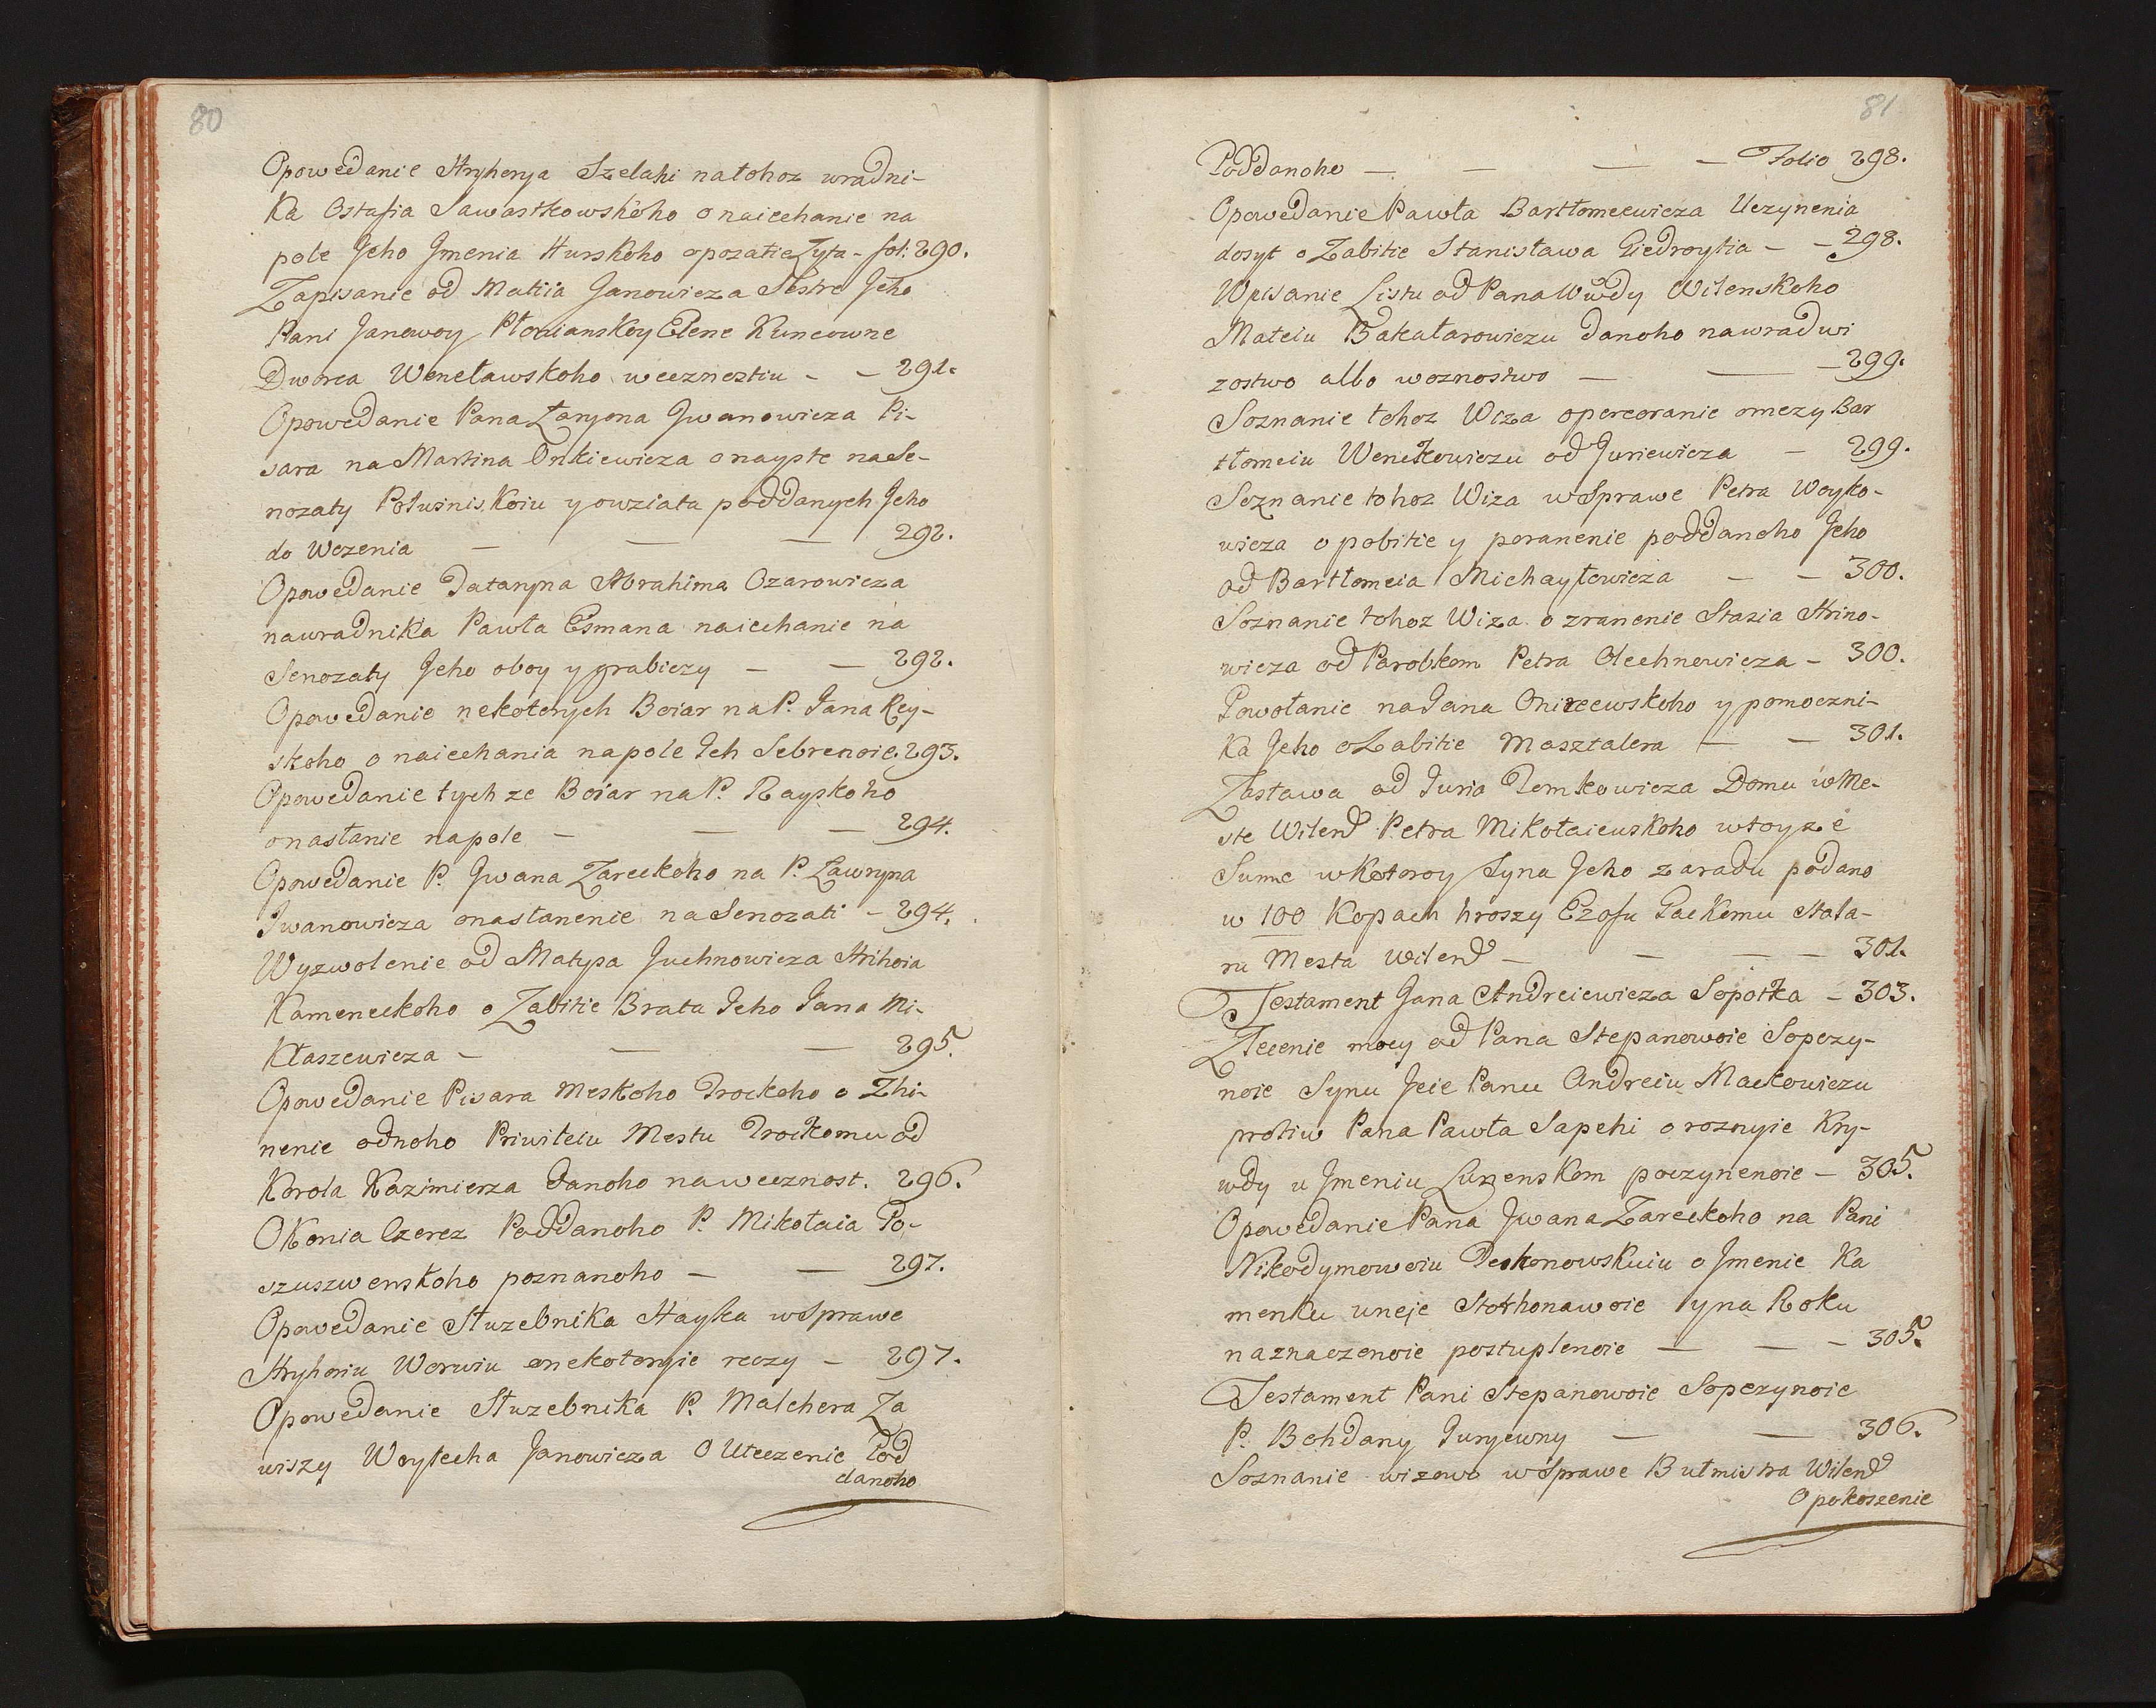 80
Opowedanie Hryhorya Szelahi natohoz wradni-
Ka Ostafia Sawastkowskoho o naiechanie na
pole Jeho Jmenia Hurskoho o pozatie Zyta - fol: 290.
Zapisanie od Matiia Janowicza Sestre Jeho
Pani Janowoy Płonianskoy Elene Kuncowne
Dworca Wenetawskoho weeznostiu - - 291.
Opowedanie Pana Łaryona Jwanowicza Pi-
sara na Martina Onkiewicza o nayste na Se-
nozaty Połusnis Koiu y owziata poddanych Jeho
do Wezenia — — — 292.
Opowedanie Tataryna Abrahima Ozarowicza
nawradnika Pawła Esmana naiechanie na
Senozaty Jeho oboy y grabiezy — — 292.
Opowedanie nekotorych Boiar na P. Jana Rey-
skoho o naiechania napole Jch Sebrenoie. 293.
Opowedanie tychze Boiar na P. Rayskoho
onasłanie napole — — — 294.
Opowedanie P. Jwana Zareckoho na P. Ławryna
Jwanowicza onasłanenie na Senozati - 294.
Wyzwolenie od Matysa Juchnowicza Hrihoia
Kameneckoho o Zabitie Brata Jeho Jana Mi-
Kłaszewicza — — — 295.
Opowedanie Pisara Meskoho Trockoho o Zhi-
nenie odnoho Priwileiu Mestu Trockomu od
Korola Kazimierza danoho naweeznost. 296.
O Konia Czerez Poddanoho P. Mikołaia Po-
szuszwenskoho poznanoho — — 297.
Opowedanie Służebnika Hayka wSprawe
Hryhoriu Worwiu onekotoryie reczy — 297.
Opowedanie Służebnika P. Malchera Za
wiszy Woytecha Janowicza O Uteczenie Pod
danoho
81
Poddanoho — — — — Folio 298.
Opowedanie Pawła Bartłomeewicza Uczynenia
dosyt o Zabitie Stanisława Giedroytia — — 298.
Wpisanie Listu od Pana Wwdy Wilenskoho
Mateiu Bakałarowiczu danoho nawrad wi
zostwo albo woznostwo — — — 299.
Soznanie tohoz Wiza opereoranie omezy Bar
tłomeiu Wenckowiczu od Juriewicza — 299.
Soznanie tohoz Wiza wSprawe Petra Woyko-
wicza o pobitie y poranenie poddanoho Jeho
od Bartłomeia Michayłowicza — — 300.
Soznanie tohoz Wiza o zranenie Stasia Hrino-
wicza od Parobkom Petra Olechnowicza — 300.
Powołanie na Jana Onizeewskoho y pomoczni-
Ka Jeho o Zabitie Masztalera — — 301.
Zastawa od Juria Temkowicza Domu wMe-
ste Wilend Petra Mikołaiewskoho wtoyze
Sume wKotoroy Syna Jeho zaradu podano
w 100 Kopach hroszy Ezofu Packomu Stola-
ru Mesta Wilend — — — — 301.
Testament Jana Andreiewicza Sopotka — 303.
Zlecenie mocy od Pana Stepanowoie Sopezy-
noie Synu Jeie Panu Andreiu Mackowiczu
protiw Pana Pawła Sapehi o roznyie Kry-
wdy u Jmeniu Luzenskom poczynenoie — 305.
Opowedanie Pana Jwana Zareckoho na Pani
Nikodymowoiu Dechonowskuiu o Jmenie Ka
menku uneje Stokhonawoie Iyna Roku
naznaczenoie postuplenoie — — — 305.
Testament Pani Stepanowoie Sopezynoie
P. Bohdany Juryewny — — 306.
Soznanie wizowo wSprawe Butmistra Wilend
O pokoszenie